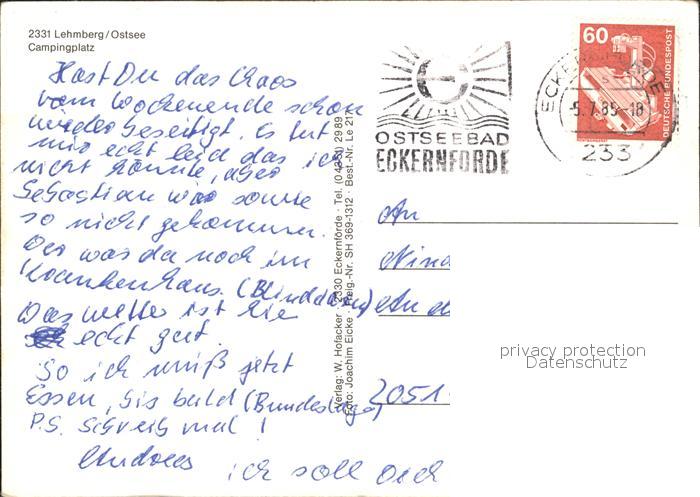 2331 Lehmberg/Ostsee
Campingplatz
Hast Du das Chaos
vom Wochenende schon
wieder beseitigt. Es tut
mir echt leid das ich
nicht konnte, aber
Sebastian wär sowie
so nicht gekommen.
Der was da noch im
Krankenhaus. (Blinddarm)
Das wetter ist hie
echt gut.
So ich muß jetzt
Essen, bis bald (Bundesliga)
P.S. Schreib mal!
Andreas
ich soll Dich
Verlag: W. Hofacker · 2330 Eckernförde · Tel. (04351) 2989
Foto: Joachim Eicke · Freig.-Nr. SH 369-1312 · Best.-Nr. Le 21
OSTSEEBAD
ECKERNFÖRDE
ECKERNFÖRDE
-5.7.85-18
233
60
DEUTSCHE BUNDESPOST
An
Nina
An d
2051
privacy protection
Datenschutz